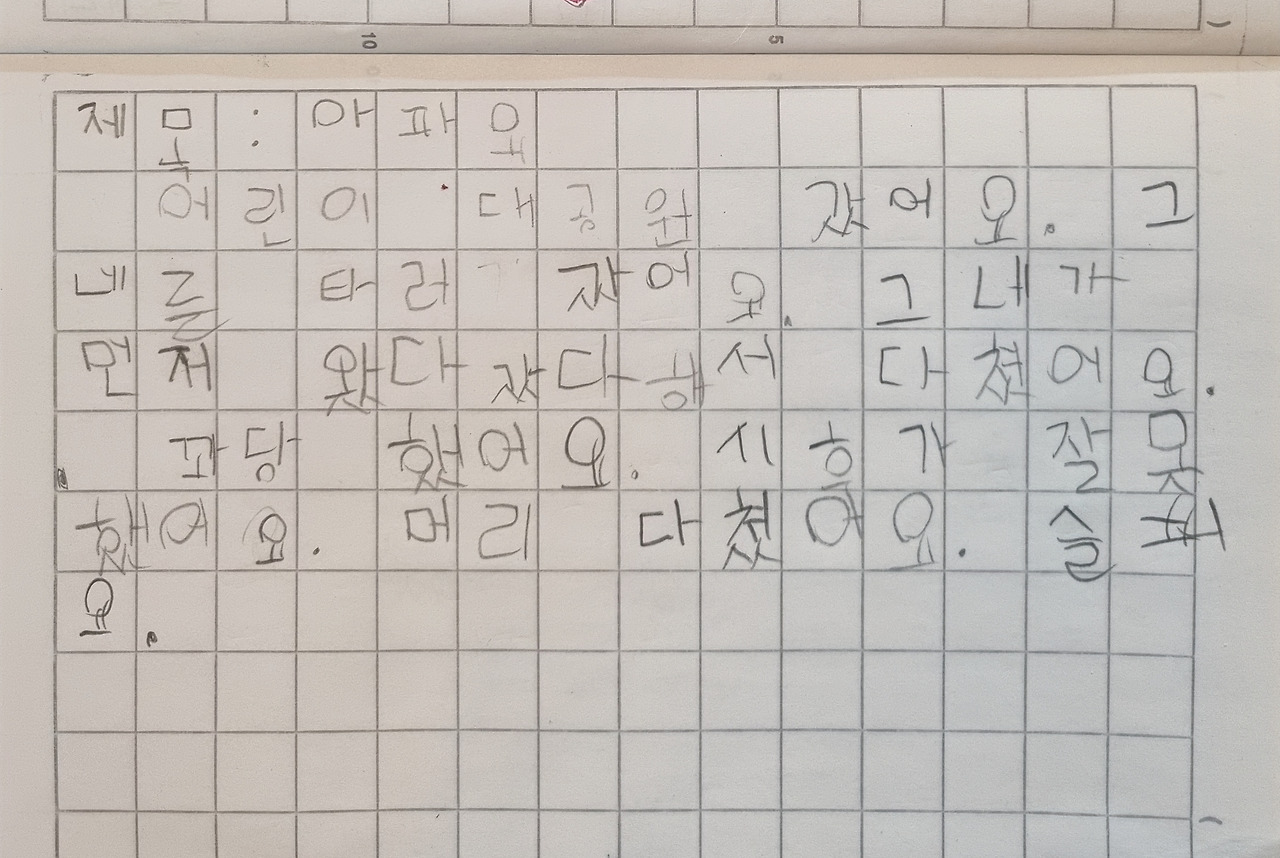 제목: 아파요
어린이 대공원 갔어요. 그
네를 타러 갔어요. 그네가
먼저 왔다갔다 해서 다쳤어요.
꽈당 했어요. 시흥가 잘못
했어요. 머리 다쳤어요. 슬퍼
요.
10
5